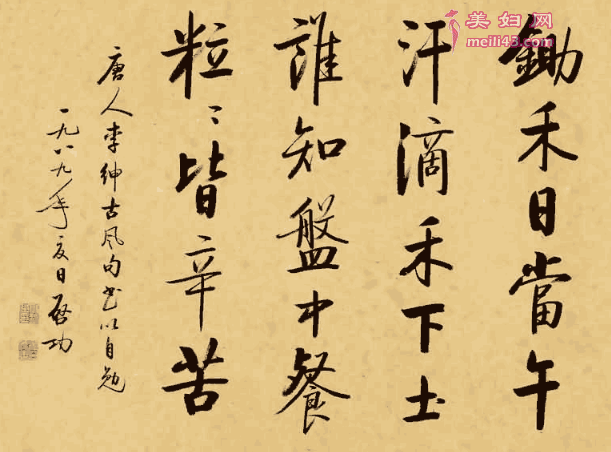 鋤禾日當午
汗滴禾下土
誰知盤中餐
粒〻皆辛苦
唐人李紳古風句書以自勉
一九八九年夏日啓功
美妇网
meili43.com